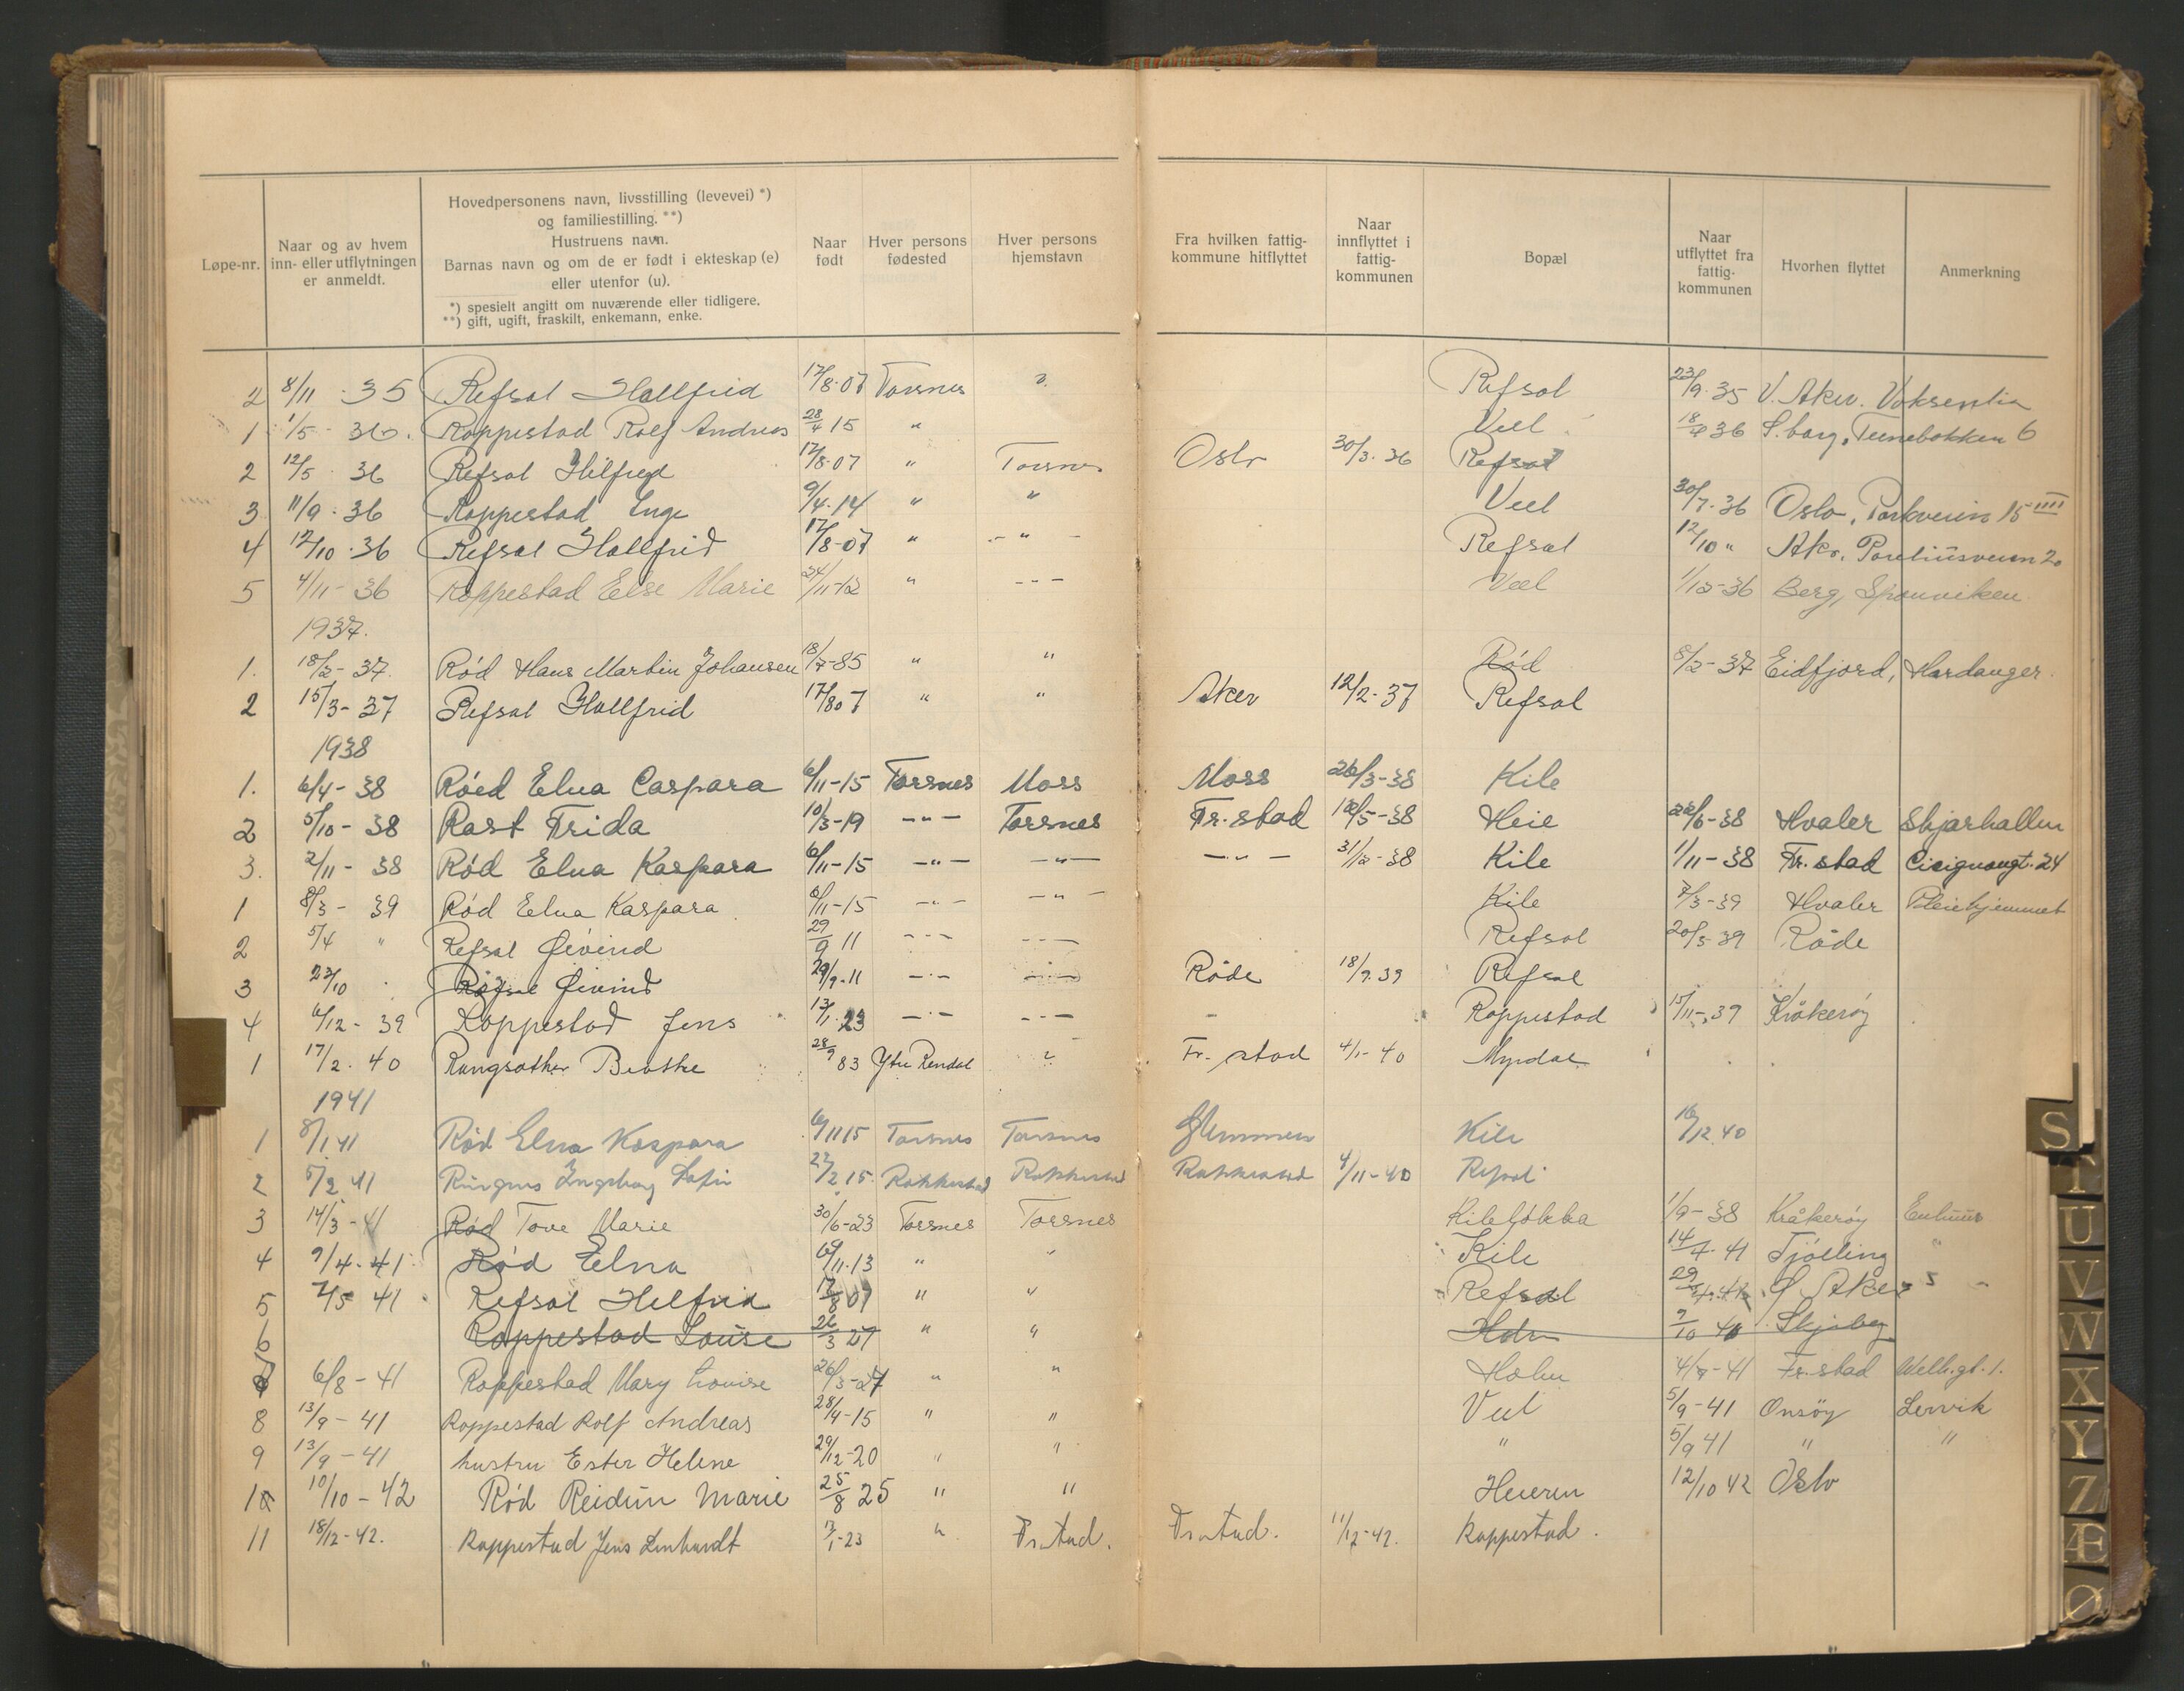 Løpe-nr. Naar og av hvem inn- eller utflytningen er anmeldt. Hovedpersonens navn, livsstilling (levevei) *) og familiestilling. **) Hustruens navn. Barnas navn og om de er født i ekteskap (e) eller utenfor (u). *) spesielt angitt om nuværende eller tidligere. **) gift, ugift, fraskilt, enkemann, enke. Naar født Hver persons fødested Hver persons hjemstavn Fra hvilken fattigkommune hitflyttet Naar innflyttet i fattigkommunen Bopæl Naar utflyttet fra fattigkommunen Hvorhen flyttet Anmerkning
2 8/11 · 35 Refsal Hallfrid 17/8·07 Torsnes Refsal 23/9·35 V. Aker. Voksenlia
1 1/5 36. Roppestad Rolf Andreas 28/4 15 " Vel 18/4 36 S.borg, Tunebakken 6
2 12/5 36 Refsal Hilfred 17/8·07 " Torsnes Oslo 30/3·36 Refsal
3 11/9·36 Roppestad Inge 9/4·14 " " Veel 30/7·36 Oslo, Parkveien 15 IIII
4 12/10·36 Refsal Hallfrid 17/8-07 " - " - Refsal 12/10 " Akr.
5 4/11-36 Roppestad Else Marie 24/11-12 " --- Veel 1/12-36 Berg, Sponviken
1937.
1. 18/2-37. Rød Hans Martin Johansen 18/7-85 " " Rød 8/2-37 Eidfjord, Hardanger.
2 15/3-37 Refsal Hallfrid 17/8 07 " " Aker 12/2·37 Refsal
1938
1. 6/4-38 Røed Elna Caspara 6/11-15 Torsnes Moss Moss 26/3-38 Kile
2 5/10-38 Rast Frida 10/3-19 -"- Torsnes Fr.stad 18/5-38 Heie 22/6-38 Hvaler Skjærhallen
3. 2/11-38 Rød Elna Kaspara 6/11-15 -"- -"- -"- 31/12-38 Kile 1/11-38 Fr.stad Cicignongt. 24
1 8/3-39 Rød Elna Kaspara 6/11-15 -"- -"- Kile 7/3-39 Hvaler Pleiehjemmet
2 5/4 " Refsal Øivind 29/9 11 --- --- Refsal 20/3-39 Råde
3 23/10 Refsal Øivind 29/9·11 -·- -·- Råde 18/9·39 Refsal
4 6/12-39 Roppestad Jens 13/1 23 -·- --- Roppestad 15/11-39 Kråkerøy
1 17/2·40 Beathe 28/9 83 Ytre Rendal " Fr.stad 4/1-40 Myrdal
1941
1 8/1 41 Rød Elna Kaspara 6/11 15 Torsnes Torsnes Glemmen Kile 16/12 40
2 5/2 41 Ingeborg 22/2 15 Rakkestad Rakkestad Rakkestad 4/11-40 Refsal
3 14/3-41 Rød Tove Marie 30/6-23 Torsnes Torsnes Kileløkka 1/9-38 Kråkerøy Enhuus
4 9/4-41 Rød Elna 6/11·13 " " Kile 14/4-41 Tjølling "
5 7/5 41 Refsal Helfrid 17/8 07 " " Refsal Ø. Aker
6 Roppestad Louise 26/3 27 " " Holm 9/10 40 Skjeberg
7 6/8-41 Roppestad Mary Louise 26/3-27 " " Holm 4/8-41 Fr.stad Welh.gt. 1.
8 13/9-41 Roppestad Rolf Andreas 28/4-15 " " Vel 5/9-41 Onsøy Lervik
9 13/9-41 hustru Ester Helene 29/12-20 " " " 5/9 41 " "
10 10/10-42 Rød Reidun Marie 25/8 25 " " Heieren 12/10 42 Oslo
11 18/12-42. Roppestad Jens Lenhardt 13/1-23 " Fr.stad. Fr.stad. 11/12-42. Roppestad.
S
T
U
V
W
X
Y
Z
Æ
Ø